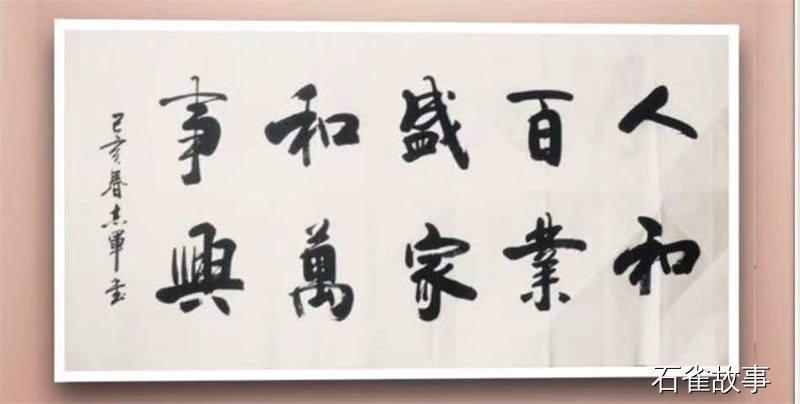 人和
百業
盛家
和萬
事興
己亥春志軍書
石雀故事